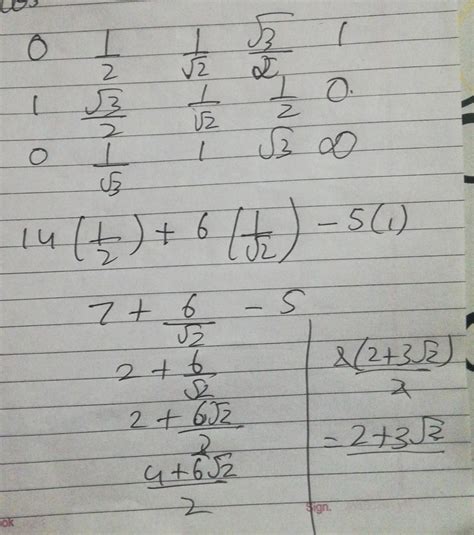 0 1/2 1/√2 √3/2 1
1 √3/2 1/√2 1/2 0.
0 1/√3 1 √3 ∞
14(1/2) + 6(1/√2) - 5(1)
7 + 6/√2 - 5
2 + 6/√2
2 + 6√2/2
4+6√2/2
2(2+3√2)/2
= 2+3√2
ok
Sign.